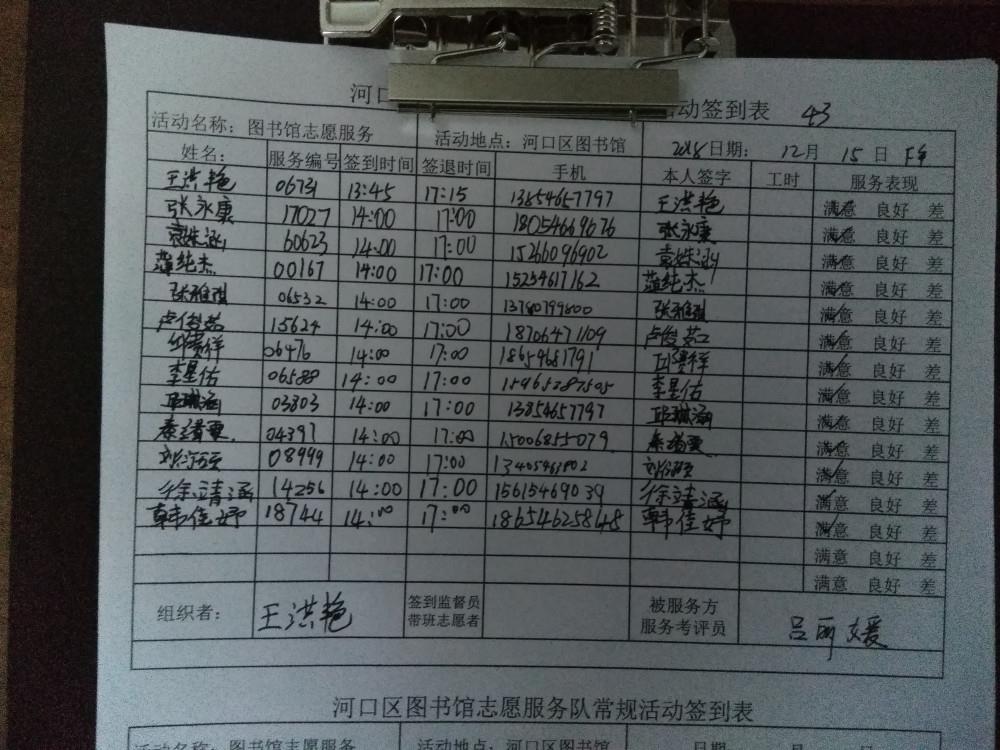 河口 动签到表 43
活动名称：图书馆志愿服务 活动地点：河口区图书馆 2018日期： 12月 15日 下午
姓名： 服务编号 签到时间 签退时间 手机 本人签字 工时 服务表现
王洪艳 06731 13:45 17:15 13854657797 王洪艳 满意 良好 差
张永康 17027 14:00 17:00 18054669676 张永康 满意 良好 差
袁姝涵 60623 14:00 17:00 15266096902 袁姝涵 满意 良好 差
纯杰 00167 14:00 17:00 15254617162 纯杰 满意 良好 差
张雅琪 06532 14:00 17:00 13780799800 张雅琪 满意 良好 差
卢俊茹 15624 14:00 17:00 18706471109 卢俊茹 满意 良好 差
邱贵祥 06476 14:00 17:00 18659681791 邱贵祥 满意 良好 差
李星佑 06588 14:00 17:00 李星佑 满意 良好 差
03803 14:00 17:00 13854657797 满意 良好 差
04397 14:00 17:00 15006855079 满意 良好 差
08999 14:00 17:00 满意 良好 差
徐靖涵 14256 14:00 17:00 15615469039 徐靖涵 满意 良好 差
韩佳妤 18744 14:00 17:00 18654625848 韩佳妤 满意 良好 差
满意 良好 差
满意 良好 差
组织者： 王洪艳 签到监督员 被服务方 吕丽媛
带班志愿者 服务考评员
河口区图书馆志愿服务队常规活动签到表
活动名称：图书馆志愿服务 活动地点：河口区图书馆 日期： 月 日